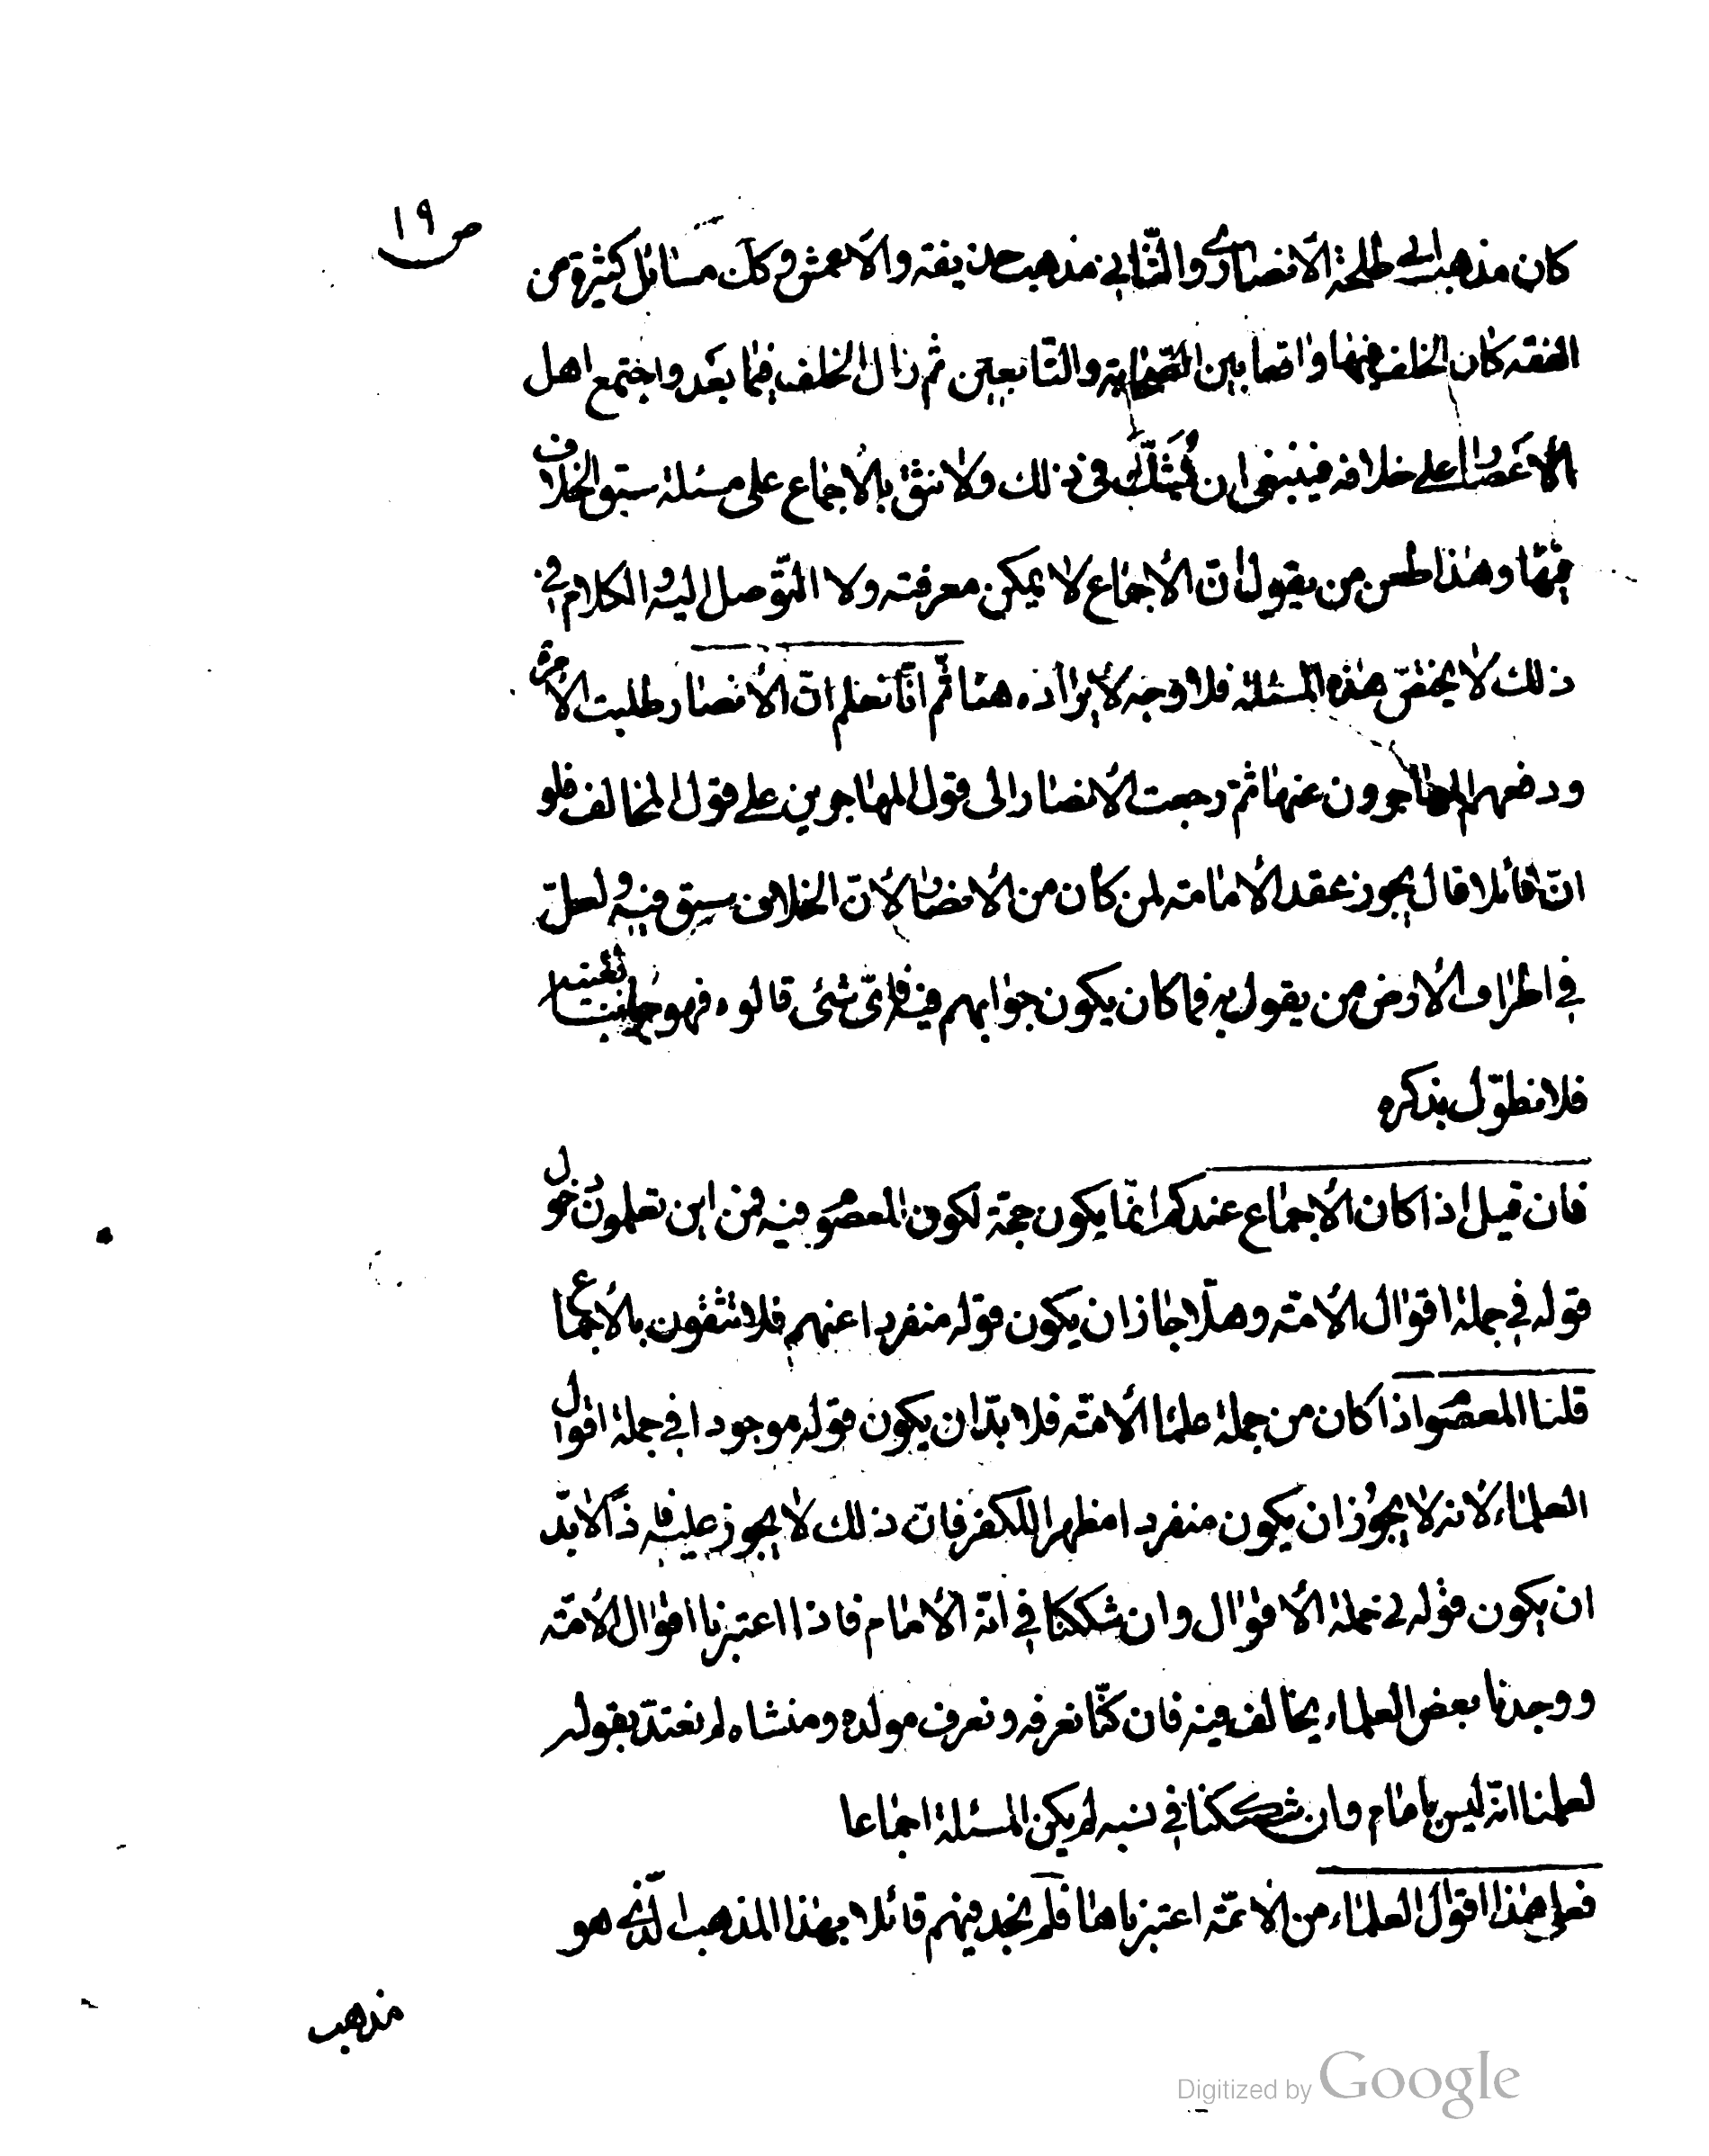 ص ١٩
كان مذهب ابي طلحة الأنصاري والثاني مذهب حذيفة والأعمش وكذلك مسائل كثيرة من
الفقه كان الخلف فيها واقعا بين الصحابة والتابعين ثم زال الخلف فيما بعد واجتمع اهل
الأعصار على خلافه فينبغي ان نشك في ذلك ولا نثق بالأجماع على مسئلة سبق الخلاف
فيها وهذا طعن من يقول ان الأجماع لا يمكن معرفته ولا التوصل اليه والكلام في
ذلك لا يختص هذه المسئلة فلا وجه لأيراده هنا ثم انا نعلم ان الأنصار طلبت الأمرة
ودفعهم المهاجرون عنها ثم رجعت الأنصار الى قول المهاجرين على قول المخالف فلو
ان قائلا قال يجوز عقد الأمامة لمن كان من الأنصار لأن الخلاف سبق فيه ولعل
في اطراف الأرض من يقول به فما كان يكون جوابهم فيه فاي شئ قالوه فهو جوابنا بعينه
فلا نطول بذكره
فان قيل اذا كان الأجماع عندكم انما يكون حجة لكون المعصوم فيه فمن اين تعلمون دخول
قوله في جملة اقوال الأمة وهلا جاز ان يكون قوله منفردا عنهم فلا تثقون بالأجماع
قلنا المعصوم اذا كان من جملة علماء الأمة فلا بد ان يكون قوله موجودا في جملة اقوال
العلماء لانه لا يجوز ان يكون منفردا مظهرا للكفر فان ذلك لا يجوز عليه فاذا لا بد
ان يكون قوله في جملة الأقوال وان شككنا في انه الأمام فاذا اعتبرنا اقوال الأمة
ووجدنا بعض العلماء يخالف فيه فان كنا نعرفه ونعرف مولده ومنشاه لم نعتد بقوله
لعلمنا انه ليس بامام وان شككنا في نسبه لم يكن المسئلة اجماعا
فعلى هذا اقوال العلماء من الأمة اعتبرناها فلم نجد فيهم قائلا بهذا المذهب الذي هو
مذهب
Digitized by Google